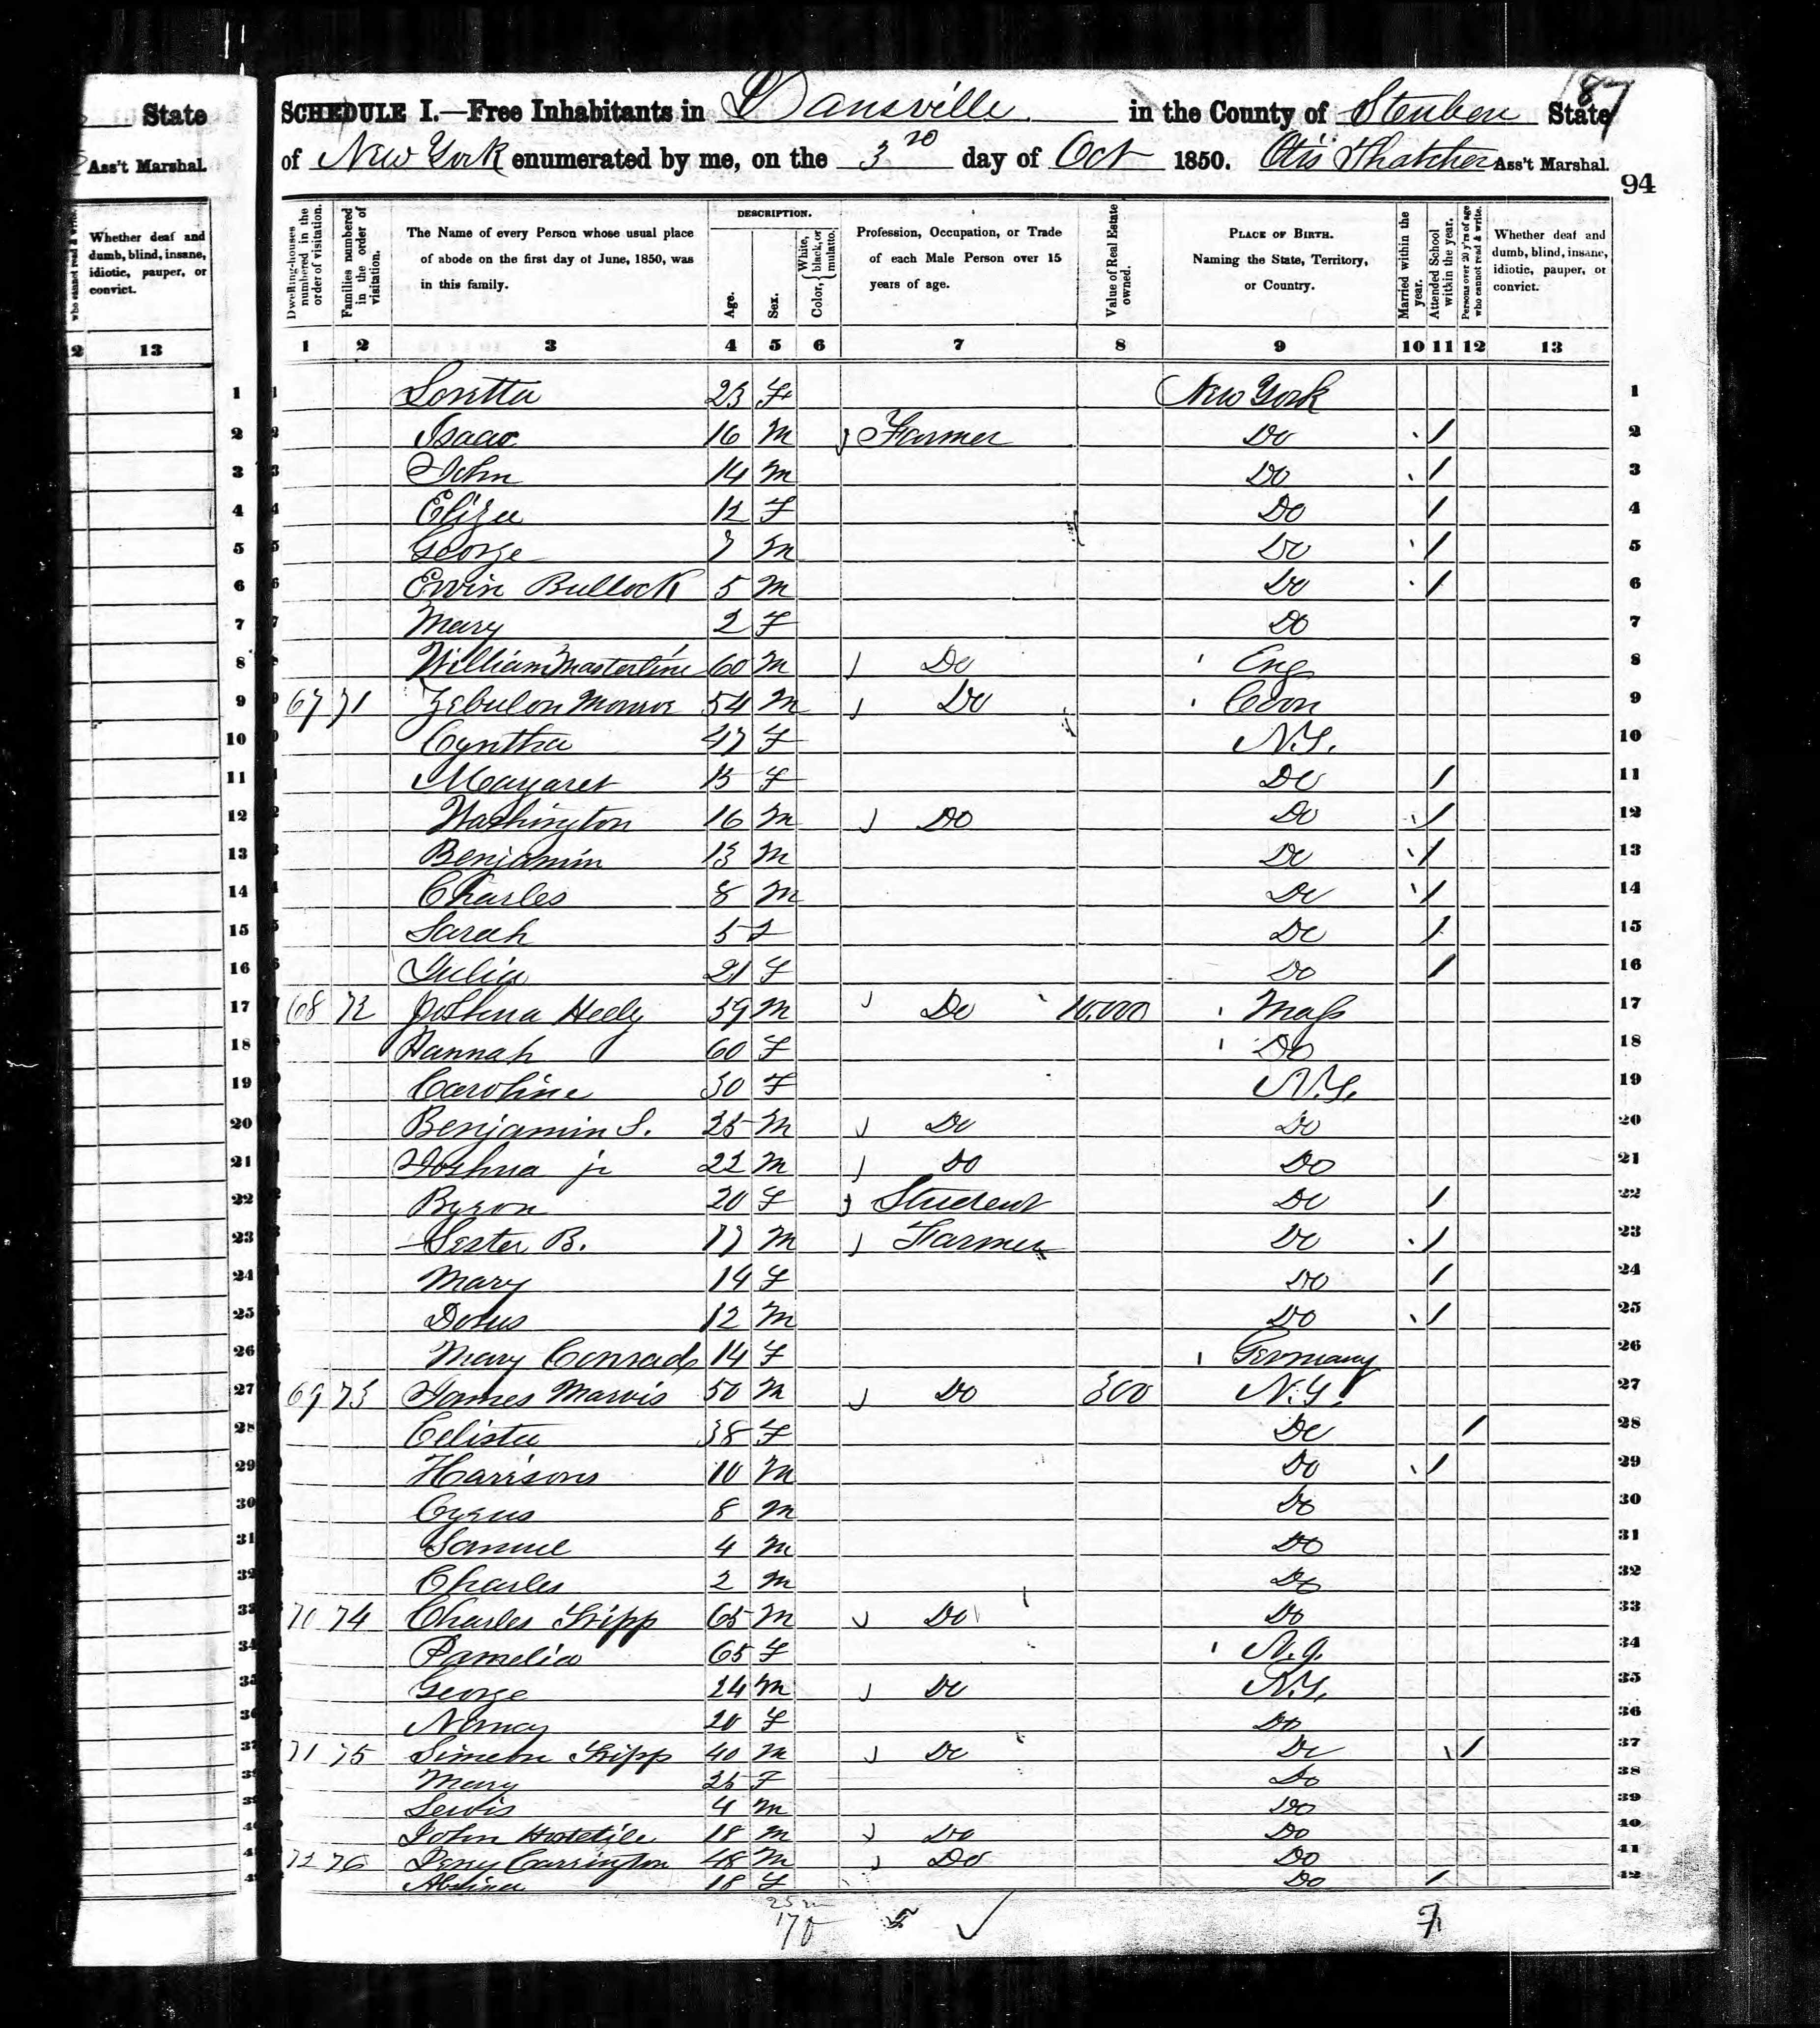 State
Ass't Marshal.
who cannot read & write.
Whether deaf and dumb, blind, insane, idiotic, pauper, or convict.
2 13
187
SCHEDULE I.—Free Inhabitants in Dansville in the County of Steuben State
of New York enumerated by me, on the 3rd day of Oct 1850. Otis Thatcher Ass't Marshal.
94
Dwelling-houses numbered in the order of visitation.
Families numbered in the order of visitation.
The Name of every Person whose usual place of abode on the first day of June, 1850, was in this family.
DESCRIPTION.
Age.
Sex.
Color, { White, black, or mulatto.
Profession, Occupation, or Trade of each Male Person over 15 years of age.
Value of Real Estate owned.
PLACE OF BIRTH. Naming the State, Territory, or Country.
Married within the year.
Attended School within the year.
Persons over 20 y'rs of age who cannot read & write.
Whether deaf and dumb, blind, insane, idiotic, pauper, or convict.
1 2 3 4 5 6 7 8 9 10 11 12 13
1 Loretta 23 F New York 1
2 Isaac 16 M Farmer Do / 2
3 John 14 M Do / 3
4 Eliza 12 F Do / 4
5 George 7 M Do / 5
6 Ervin Bullock 5 M Do / 6
7 Mary 2 F Do 7
8 William Masterline 60 M Do Eng 8
9 67 71 Zebulon Monroe 54 M Do Conn 9
10 Cyntha 47 F N.Y. 10
11 Margaret 15 F Do / 11
12 Washington 16 M Do Do / 12
13 Benjamin 13 M Do / 13
14 Charles 8 M Do / 14
15 Sarah 5 F Do / 15
16 Julia 21 F Do / 16
17 68 72 Joshua Healy 59 M Do 10,000 Mass 17
18 Hannah 60 F Do 18
19 Caroline 30 F N.Y. 19
20 Benjamin S. 25 M Do Do 20
21 Joshua jr 22 M Do Do 21
22 Byron 20 F Student Do / 22
23 Lester B. 17 M Farmer Do / 23
24 Mary 14 F Do / 24
25 Dorus 12 M Do / 25
26 Mary Conrad 14 F Germany 26
27 69 73 James Marvis 50 M Do 800 N.Y. 27
28 Celista 38 F Do / 28
29 Harrison 10 M Do / 29
30 Cyrus 8 M Do 30
31 Samuel 4 M Do 31
32 Charles 2 M Do 32
33 70 74 Charles Tripp 65 M Do Do 33
34 Pamelia 65 F N.J. 34
35 George 24 M Do N.Y. 35
36 Nancy 20 F Do 36
37 71 75 Simeon Tripp 40 M Do Do / 37
38 Mary 25 F Do 38
39 Lewis 4 M Do 39
40 John 18 M Do Do 40
41 72 76 Perry Carrington 48 M Do Do 41
42 18 F Do / 42
25 m
17 f